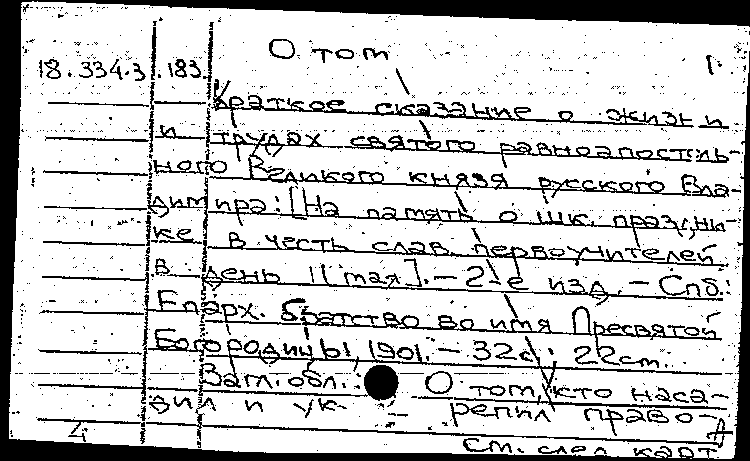 О том
18.334.3 .183. 1.
Краткое сказание о жизни
и трудах святого равноапостоль-
ного Великого князя русского Вла-
димира: [На память о шк. праздни-
ке в честь слав. первоучителей
в день 11 мая]. – 2-е изд. – Спб.:
Епарх. братство во имя Пресвятой
Богородицы, 1901. – 32с.; 22см.
Загл. обл.: О том, кто наса-
дил и ук- репил право-
4
См. след. карт.